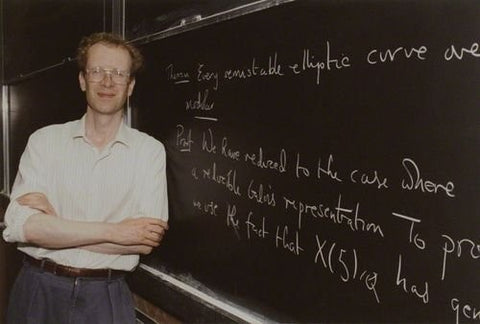 Theorem Every semistable elliptic curve over
modular
Proof We have reduced to the case where
a reducible Galois representation To pro
we use the fact that X(5)/Q has gen